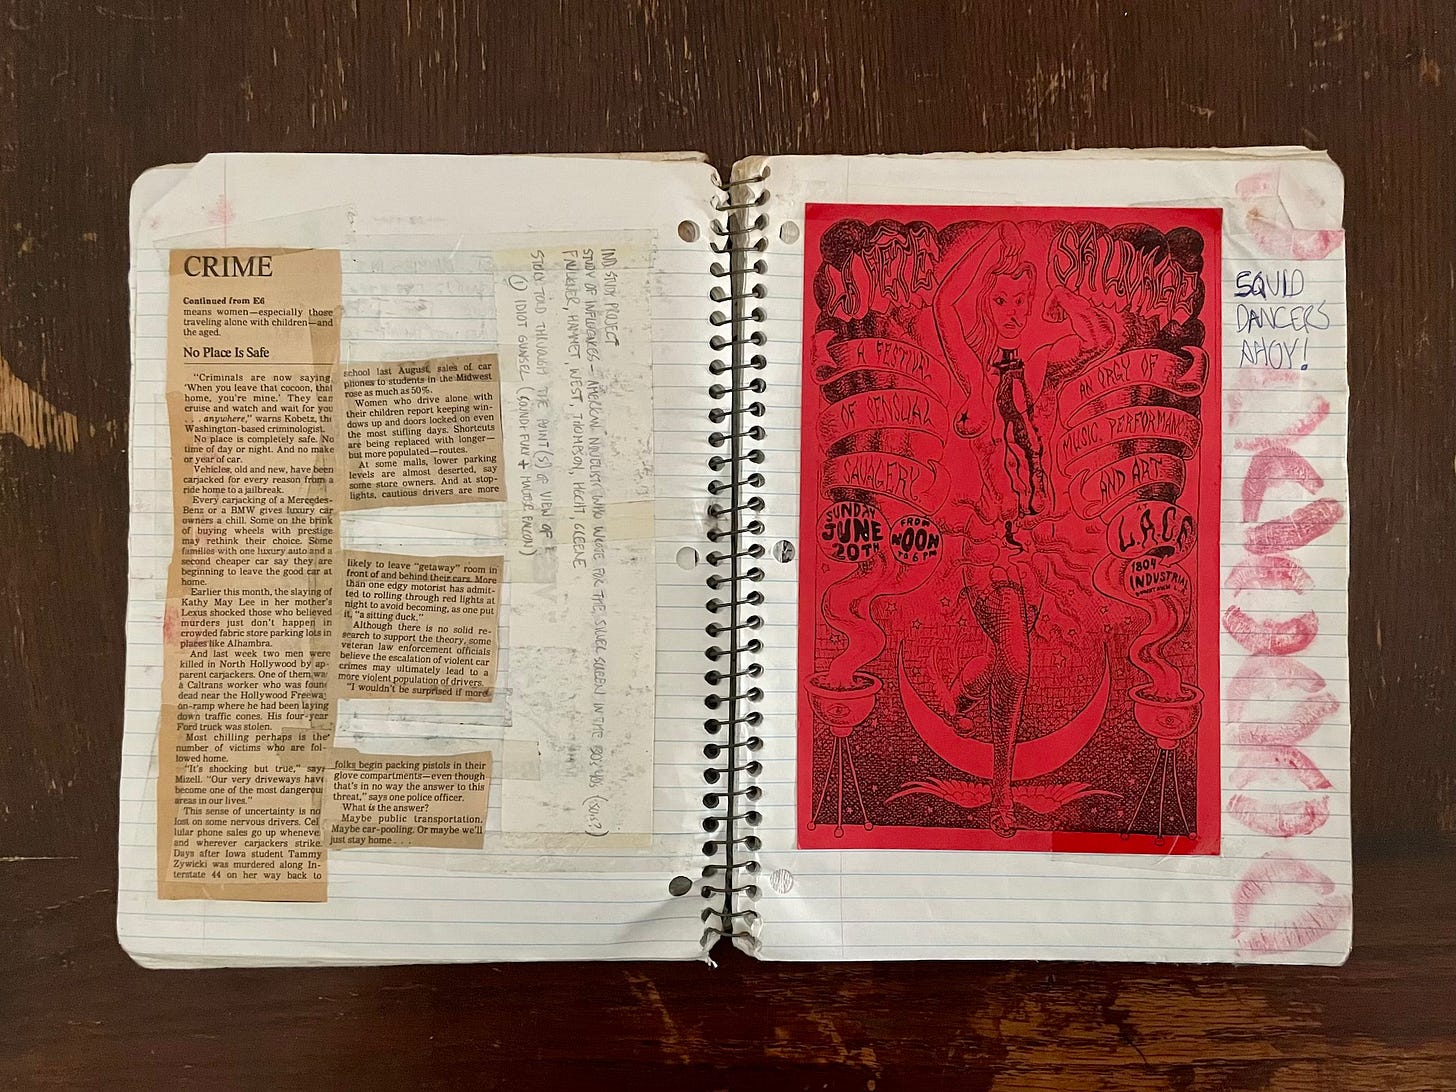 CRIME
Continued from E6
means women—especially those
traveling alone with children—and
the aged.
No Place Is Safe
"Criminals are now saying,
'When you leave that cocoon, that
home, you're mine.' They can
cruise and watch and wait for you
. . . anywhere," warns Kobetz, the
Washington-based criminologist.
No place is completely safe. No
time of day or night. And no make
or year of car.
Vehicles, old and new, have been
carjacked for every reason from a
ride home to a jailbreak.
Every carjacking of a Mercedes-
Benz or a BMW gives luxury car
owners a chill. Some on the brink
of buying wheels with prestige
may rethink their choice. Some
families with one luxury auto and a
second cheaper car say they are
beginning to leave the good car at
home.
Earlier this month, the slaying of
Kathy May Lee in her mother's
Lexus shocked those who believed
murders just don't happen in
crowded fabric store parking lots in
places like Alhambra.
And last week two men were
killed in North Hollywood by ap-
parent carjackers. One of them was
a Caltrans worker who was found
dead near the Hollywood Freeway
on-ramp where he had been laying
down traffic cones. His four-year
Ford truck was stolen.
Most chilling perhaps is the
number of victims who are fol-
lowed home.
"It's shocking but true," says
Mizell. "Our very driveways have
become one of the most dangerous
areas in our lives."
This sense of uncertainty is no
lost on some nervous drivers. Cel
lular phone sales go up wheneve
and wherever carjackers strike.
Days after Iowa student Tammy
Zywicki was murdered along In-
terstate 44 on her way back to
school last August, sales of car
phones to students in the Midwest
rose as much as 50%.
Women who drive alone with
their children report keeping win-
dows up and doors locked on even
the most stifling days. Shortcuts
are being replaced with longer—
but more populated—routes.
At some malls, lower parking
levels are almost deserted, say
some store owners. And at stop-
lights, cautious drivers are more
likely to leave "getaway" room in
front of and behind their cars. More
than one edgy motorist has admit-
ted to rolling through red lights at
night to avoid becoming, as one put
it, "a sitting duck."
Although there is no solid re-
search to support the theory, some
veteran law enforcement officials
believe the escalation of violent car
crimes may ultimately lead to a
more violent population of drivers.
"I wouldn't be surprised if more
folks begin packing pistols in their
glove compartments—even though
that's in no way the answer to this
threat," says one police officer.
What is the answer?
Maybe public transportation.
Maybe car-pooling. Or maybe we'll
just stay home . . .
IND STUDY PROJECT
STUDY OF INFLUENCES – AMERICAN NOVELIST WHO WROTE FOR THE SILVER SCREEN IN THE 30s 40s (50s?)
FAULKNER, HAMMET, WEST, THOMPSON, HECHT, GREENE
STORY TOLD THROUGH THE POINT(S) OF VIEW OF
① IDIOT GUNSEL (SOUND + FURY + MALTESE FALCON)
FETE
SAUVAGE
A FESTIVAL
OF SENSUAL
SAVAGERY
AN ORGY OF
MUSIC PERFORMANCE
AND ART
SUNDAY
JUNE
20TH
FROM
NOON
TO 6 PM
L.A.C.E.
1804
INDUSTRIAL
SQUID
DANCERS
AHOY!